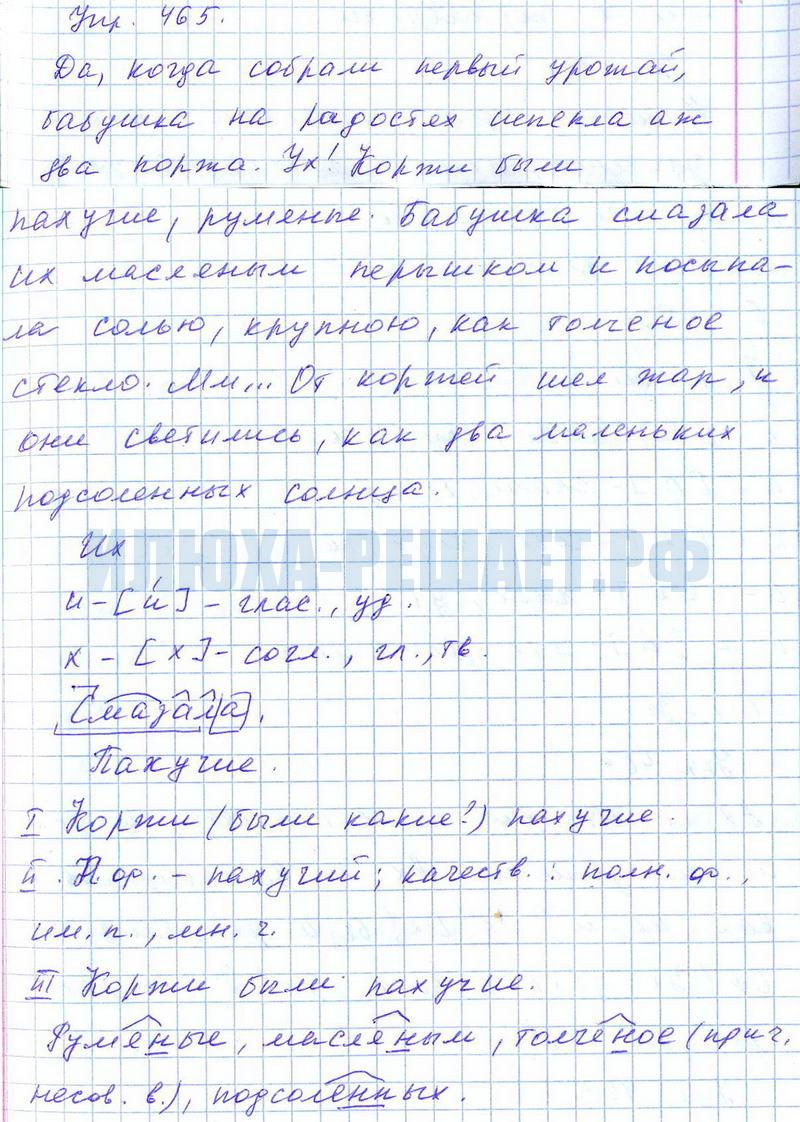 Упр. 465.
Да, когда собрали первый урожай,
бабушка на радостях испекла аж
два коржа. Ух! Коржи были
пахучие, румяные. Бабушка смазала
их масляным перышком и посыпа-
ла солью, крупною, как толченое
стекло. Мм... От коржей шел жар, и
они светились, как два маленьких
подсоленных солнца.
Их
ИЛЮХА-РЕШАЕТ.РФ
и - [и́] - глас., уд.
х - [х] - согл., гл., тв.
Смазала.
Пахучие.
I Коржи (были какие?) пахучие.
II. Н.ф. - пахучий; качеств.: полн. ф.,
им. п., мн. ч.
III Коржи были пахучие.
Румяные, масляным, толченое (прич.
несов. в.), подсоленных.